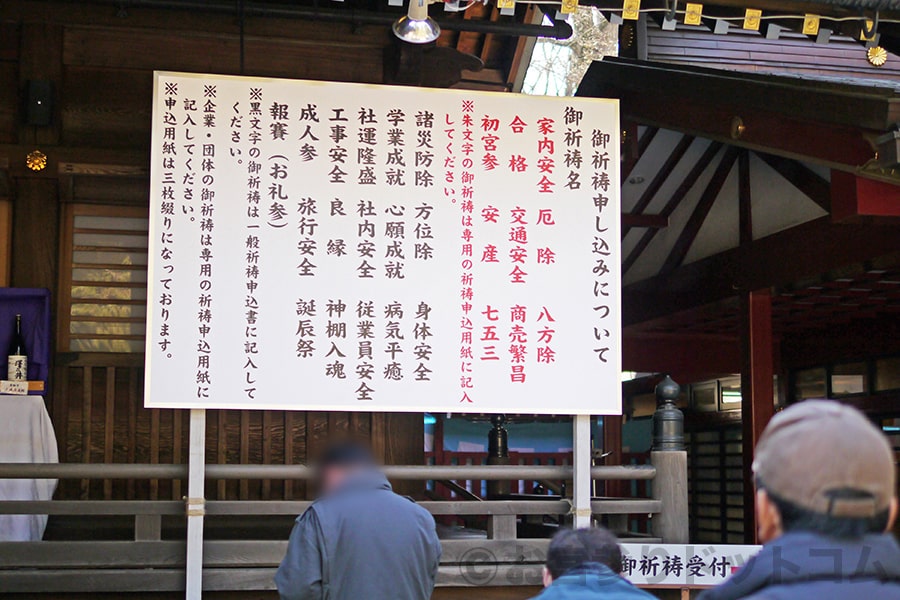 御祈祷申し込みについて
御祈祷名
家内安全 厄除 八方除
合格 交通安全 商売繁昌
初宮参 安産 七五三
※朱文字の御祈祷は専用の祈祷申込用紙に記入
してください。
諸災防除 方位除 身体安全
学業成就 心願成就 病気平癒
社運隆盛 社内安全 従業員安全
工事安全 良縁 神棚入魂
成人参 旅行安全 誕辰祭
報賽（お礼参）
※黒文字の御祈祷は一般祈祷申込書に記入して
ください。
※企業・団体の御祈祷は専用の祈祷申込用紙に
記入してください。
※申込用紙は三枚綴りになっております。
御祈祷受付
©おまいりドットコム